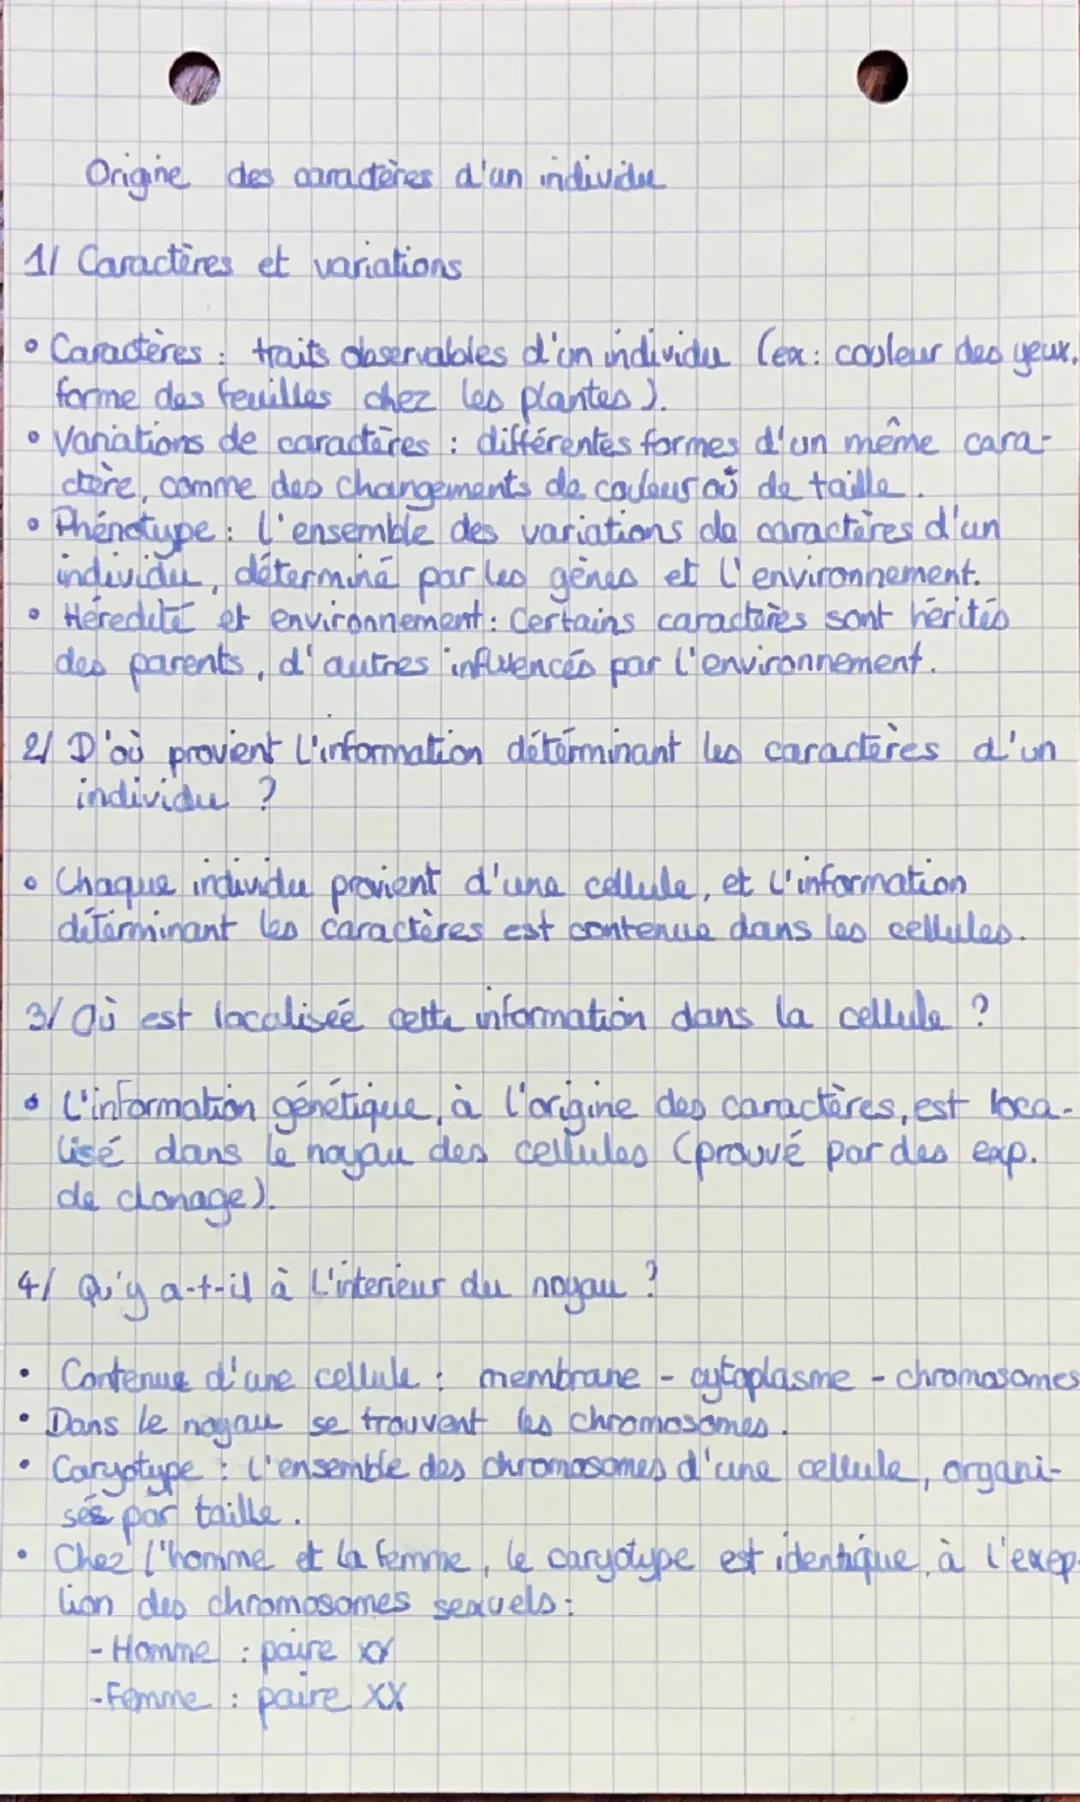 Origine des caractères d'un individu
1/ Caractères et variations
• Caractères : traits observables d'un individu (ex: couleur des yeux,
forme des feuilles chez les plantes).
• Variations de caractères : différentes formes d'un même cara-
ctère, comme des changements de couleur où de taille.
• Phénotype : l'ensemble des variations de caractères d'un
individu, déterminé par les gènes et l'environnement.
• Héredité et environnement : Certains caractères sont hérités
des parents, d'autres influencés par l'environnement.
2/ D'où provient l'information déterminant les caractères d'un
individu ?
• Chaque individu provient d'une cellule, et l'information
déterminant les caractères est contenue dans les cellules.
3/ Où est localiseé cette information dans la cellule ?
• L'information génétique, à l'origine des caractères, est loca-
lisé dans le noyau des cellules (prouvé par des exp.
de clonage).
4/ Qu'y a-t-il à l'interieur du noyau ?
• Contenue d'une cellule : membrane - cytoplasme - chromosomes
• Dans le noyau se trouvent les chromosomes.
• Caryotype : l'ensemble des chromosomes d'une cellule, organi-
sés par taille.
• Chez l'homme et la femme, le caryotype est identique, à l'exep-
tion des chromosomes sexuels :
- Homme : paire XY
- Femme : paire XX